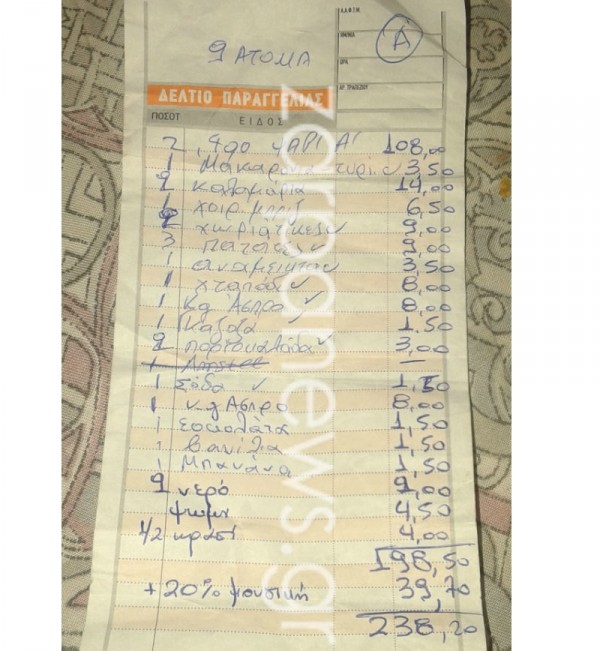 9 ΑΤΟΜΑ
Α
ΔΕΛΤΙΟ ΠΑΡΑΓΓΕΛΙΑΣ
ΠΟΣΟΤ ΕΙΔΟΣ
ΩΡΑ
ΑΡ. ΤΡΑΠΕΖΙΟΥ
2 ΨΑΡΙ Α' 108,00
1 Μακαρόνια τυρί 3,50
2 καλαμάρια 14,00
1 χοιρ μπριζ 6,50
2 χωριάτικες 9,00
3 πατάτες 9,00
1 ανάμεικτη 3,50
1 χταπόδι 8,00
1 Kg Άσπρο 8,00
1 Γκαζόζα 1,50
2 πορτοκαλάδα 3,00
1 Amstel —
1 Σόδα 1,50
1 κ.g Άσπρο 8,00
1 σοκολάτα 1,50
1 βανίλια 1,50
1 Μπανάνα 1,50
9 νερό 9,00
ψωμι 4,50
1/2 κρασί 4,00
198,50
+ 20% μουσική 39,70
238,20
zarpanews.gr